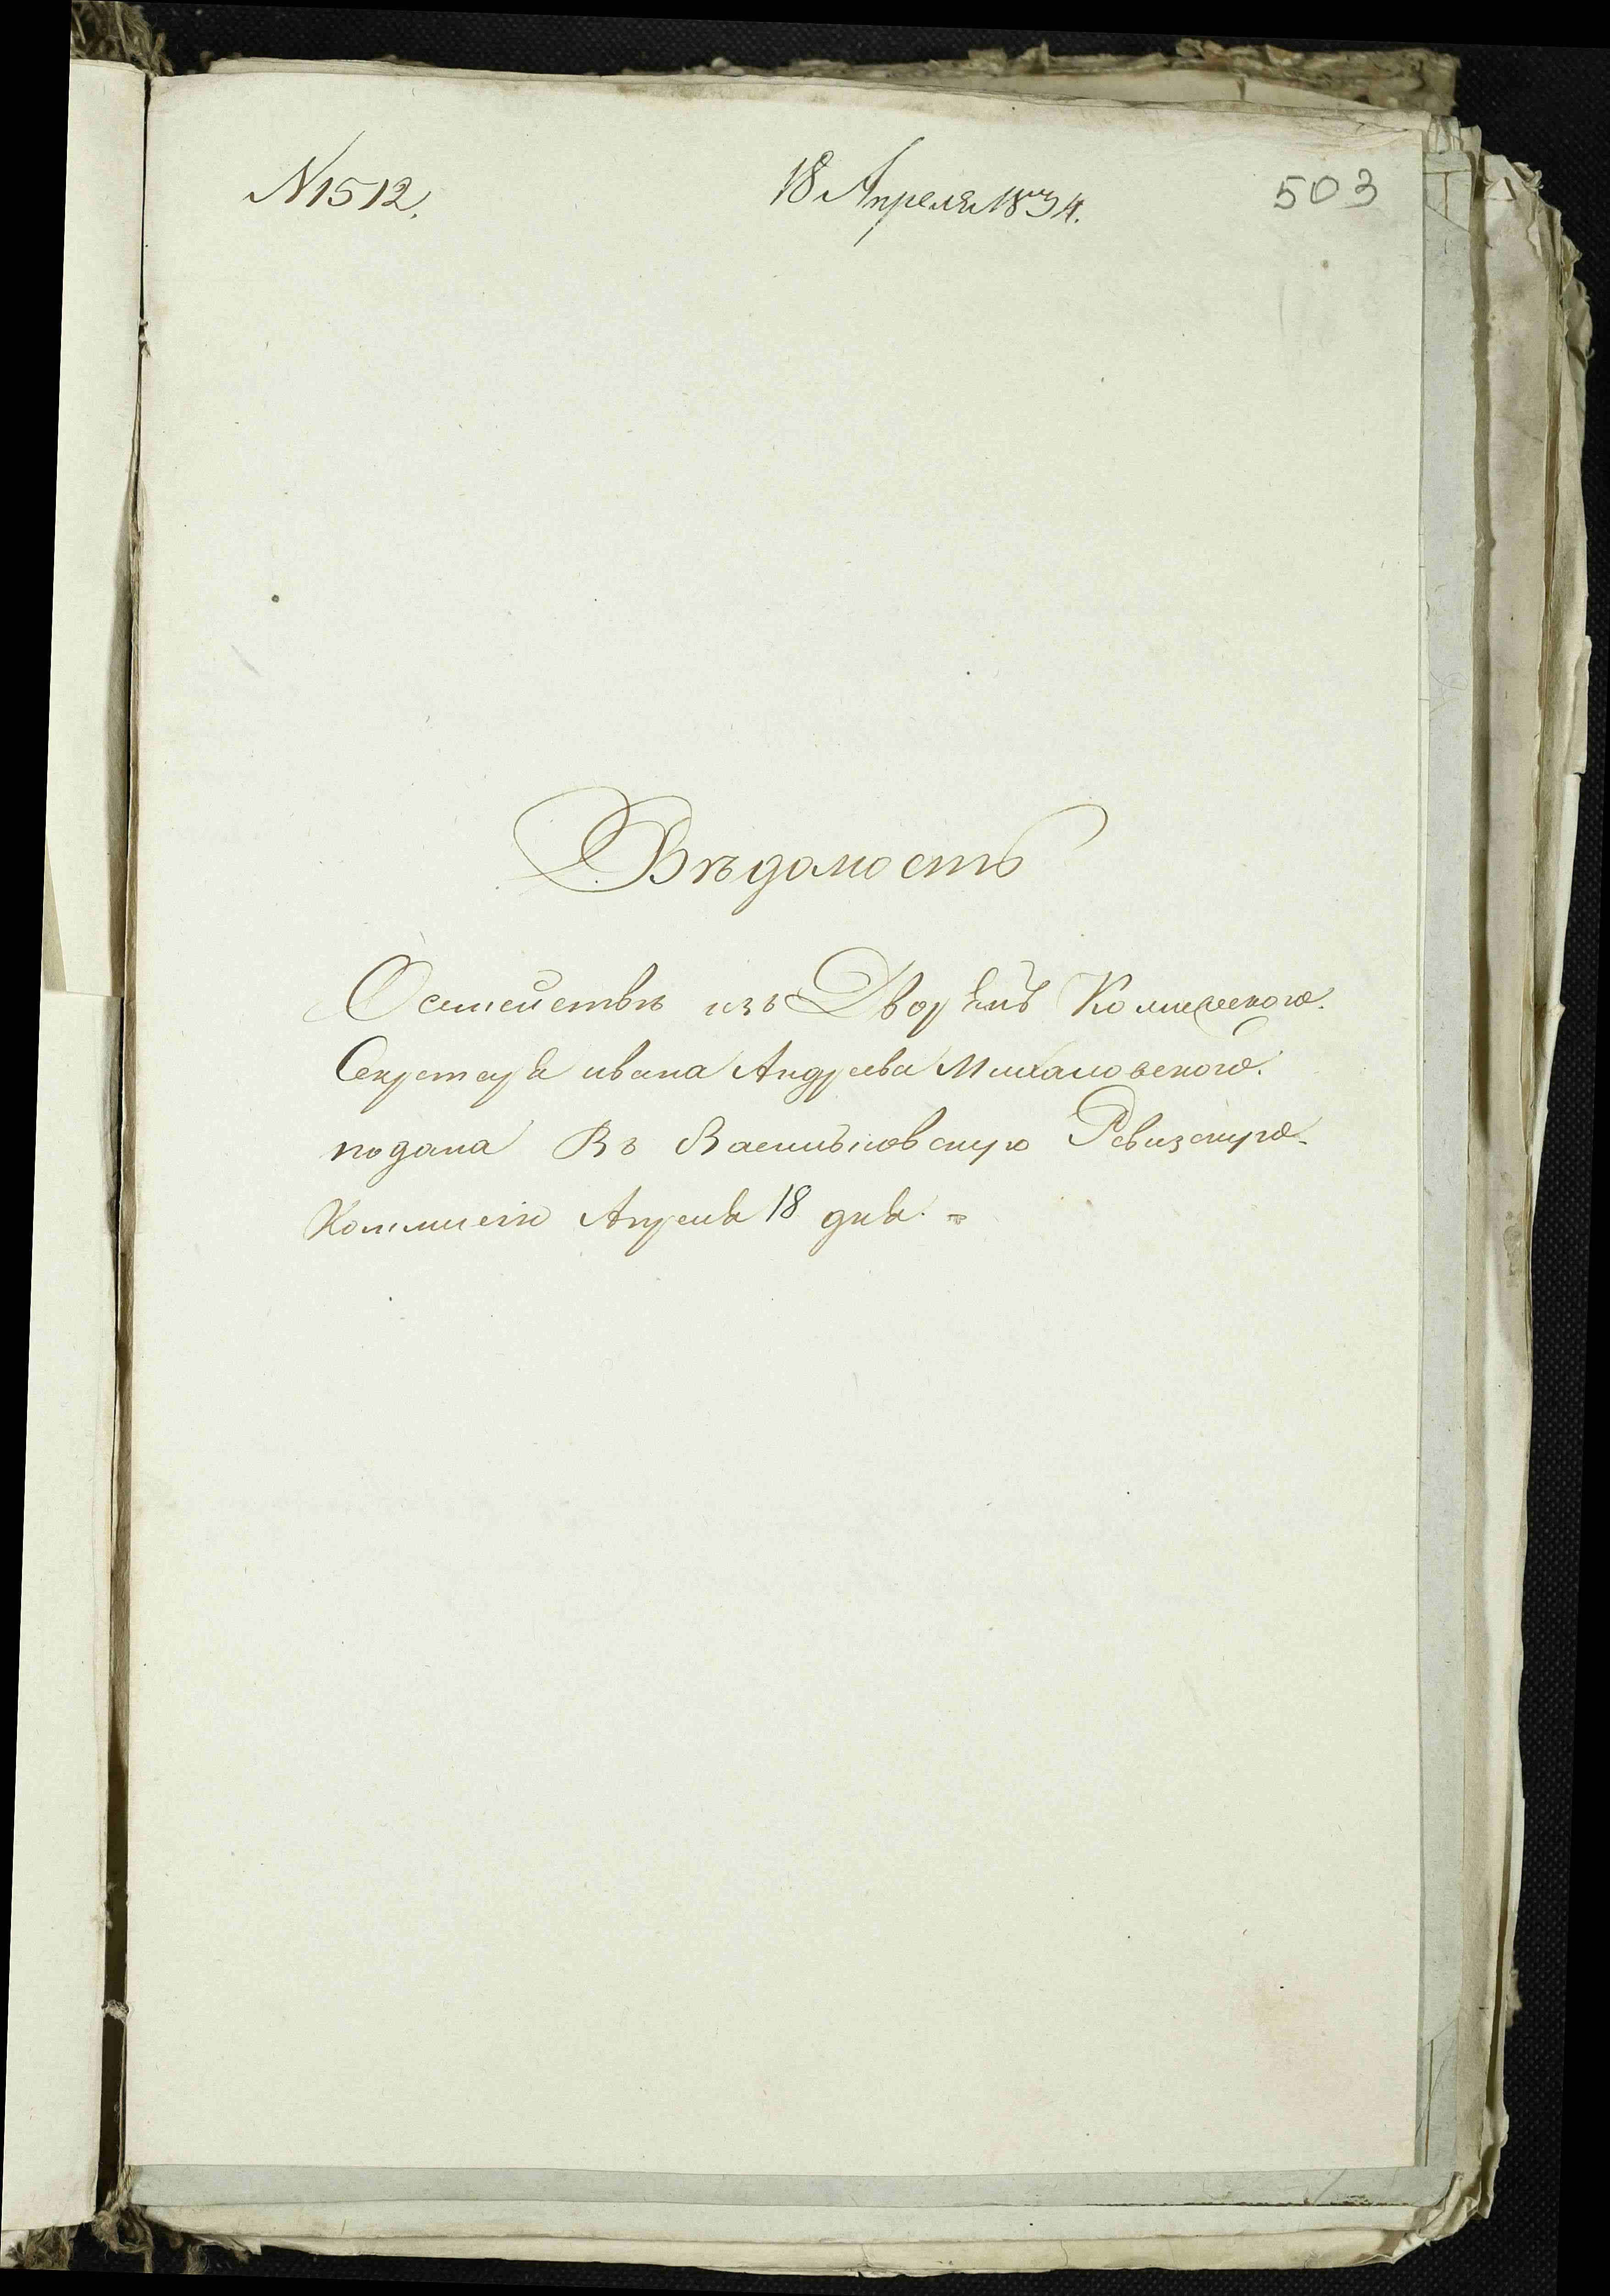 N 1512.
18 Апреля 1834.
503
Вѣдомость
О семействѣ изъ Дворянъ Коллежскаго
Секретаря ивана Андреева Михаловскаго
подана Въ Васильковскую Ревизскую
Коммисію Апреля 18 дня.